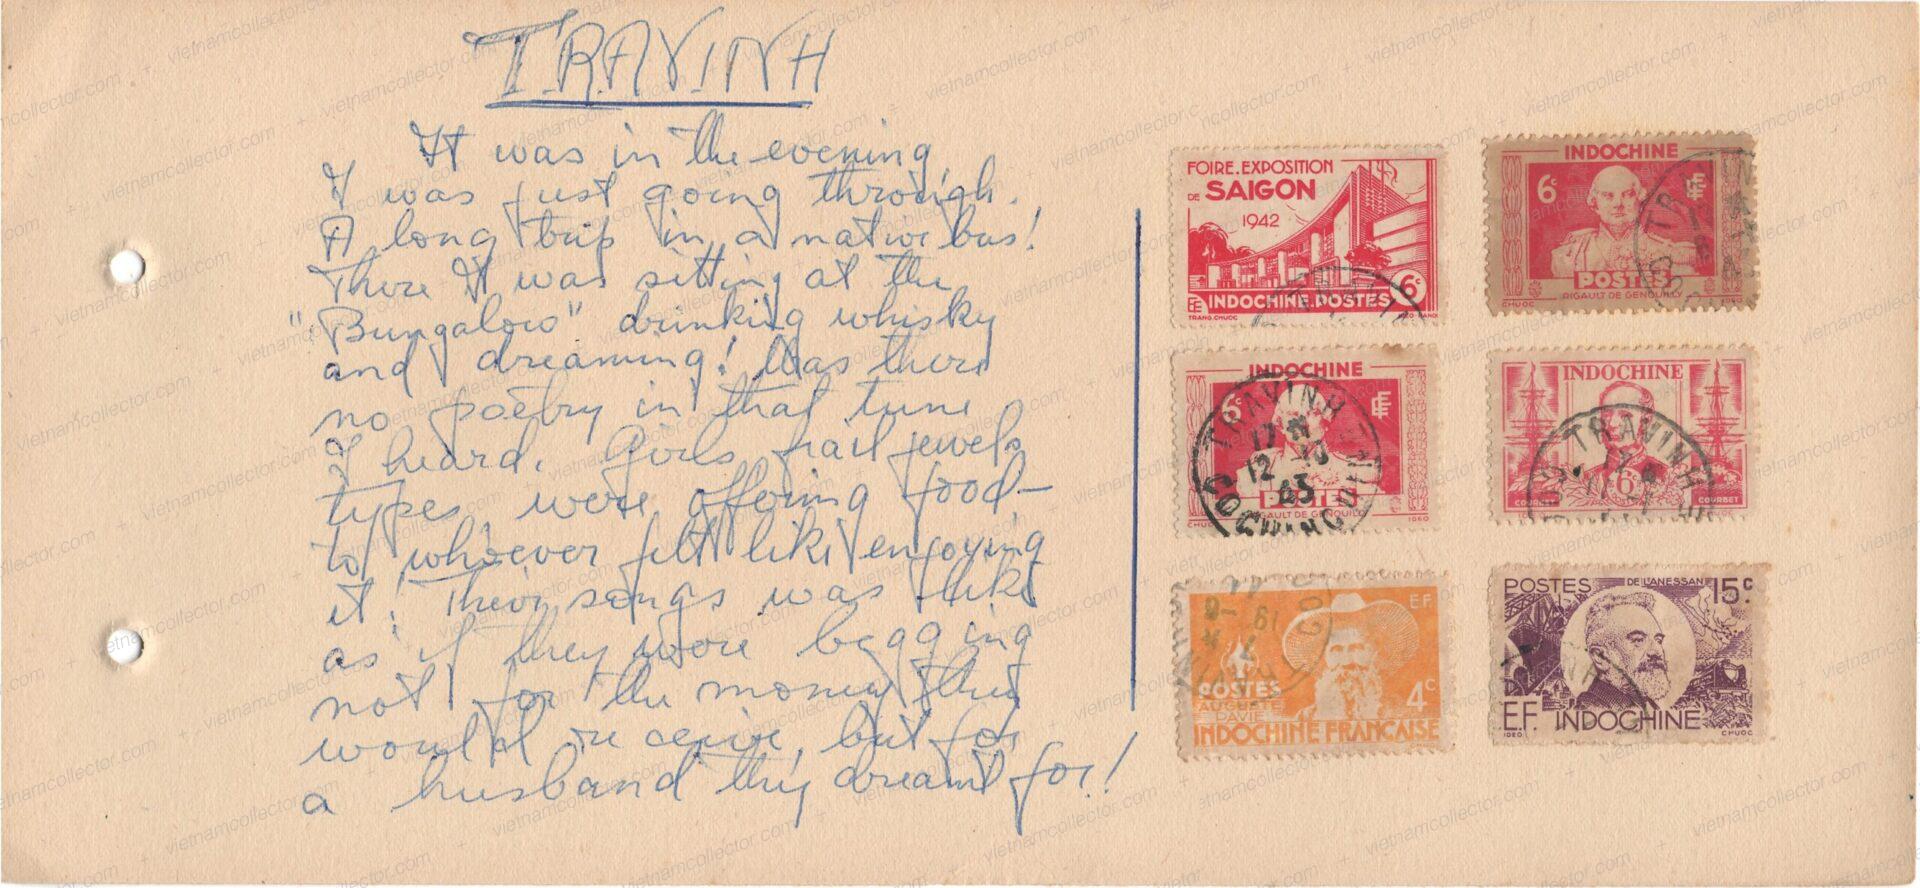 TRAVINH
It was in the evening
I was just going through.
A long trip in a native bus!
There It was sitting at the
"Bungalow" drinking whisky
and dreaming! Was there
no poëtry in that tune
I heard. Girls frail jewels
types were offering food-
to whoever felt like enjoying
it! Their songs was like
as if they were begging
not for the money they
would receive, but for
a husband they dreamt for!
FOIRE.EXPOSITION
DE SAIGON
1942
6c
INDOCHINE.POSTES
TRANG.CHUOC
INDOCHINE
6c
POSTES
RIGAULT DE GENOUILLY
CHUOC
INDOCHINE
6c
POSTES
RIGAULT DE GENOUILLY
IDEO
TRAVINH
12 10
43
COCHINCHINE
INDOCHINE
6c
COURBET
TRAVINH
E.F.
POSTES
AUGUSTE
PAVIE
4c
INDOCHINE FRANÇAISE
POSTES DE LANESSAN 15c
E.F. INDOCHINE
IDEO CHUOC
vietnamcollector.com